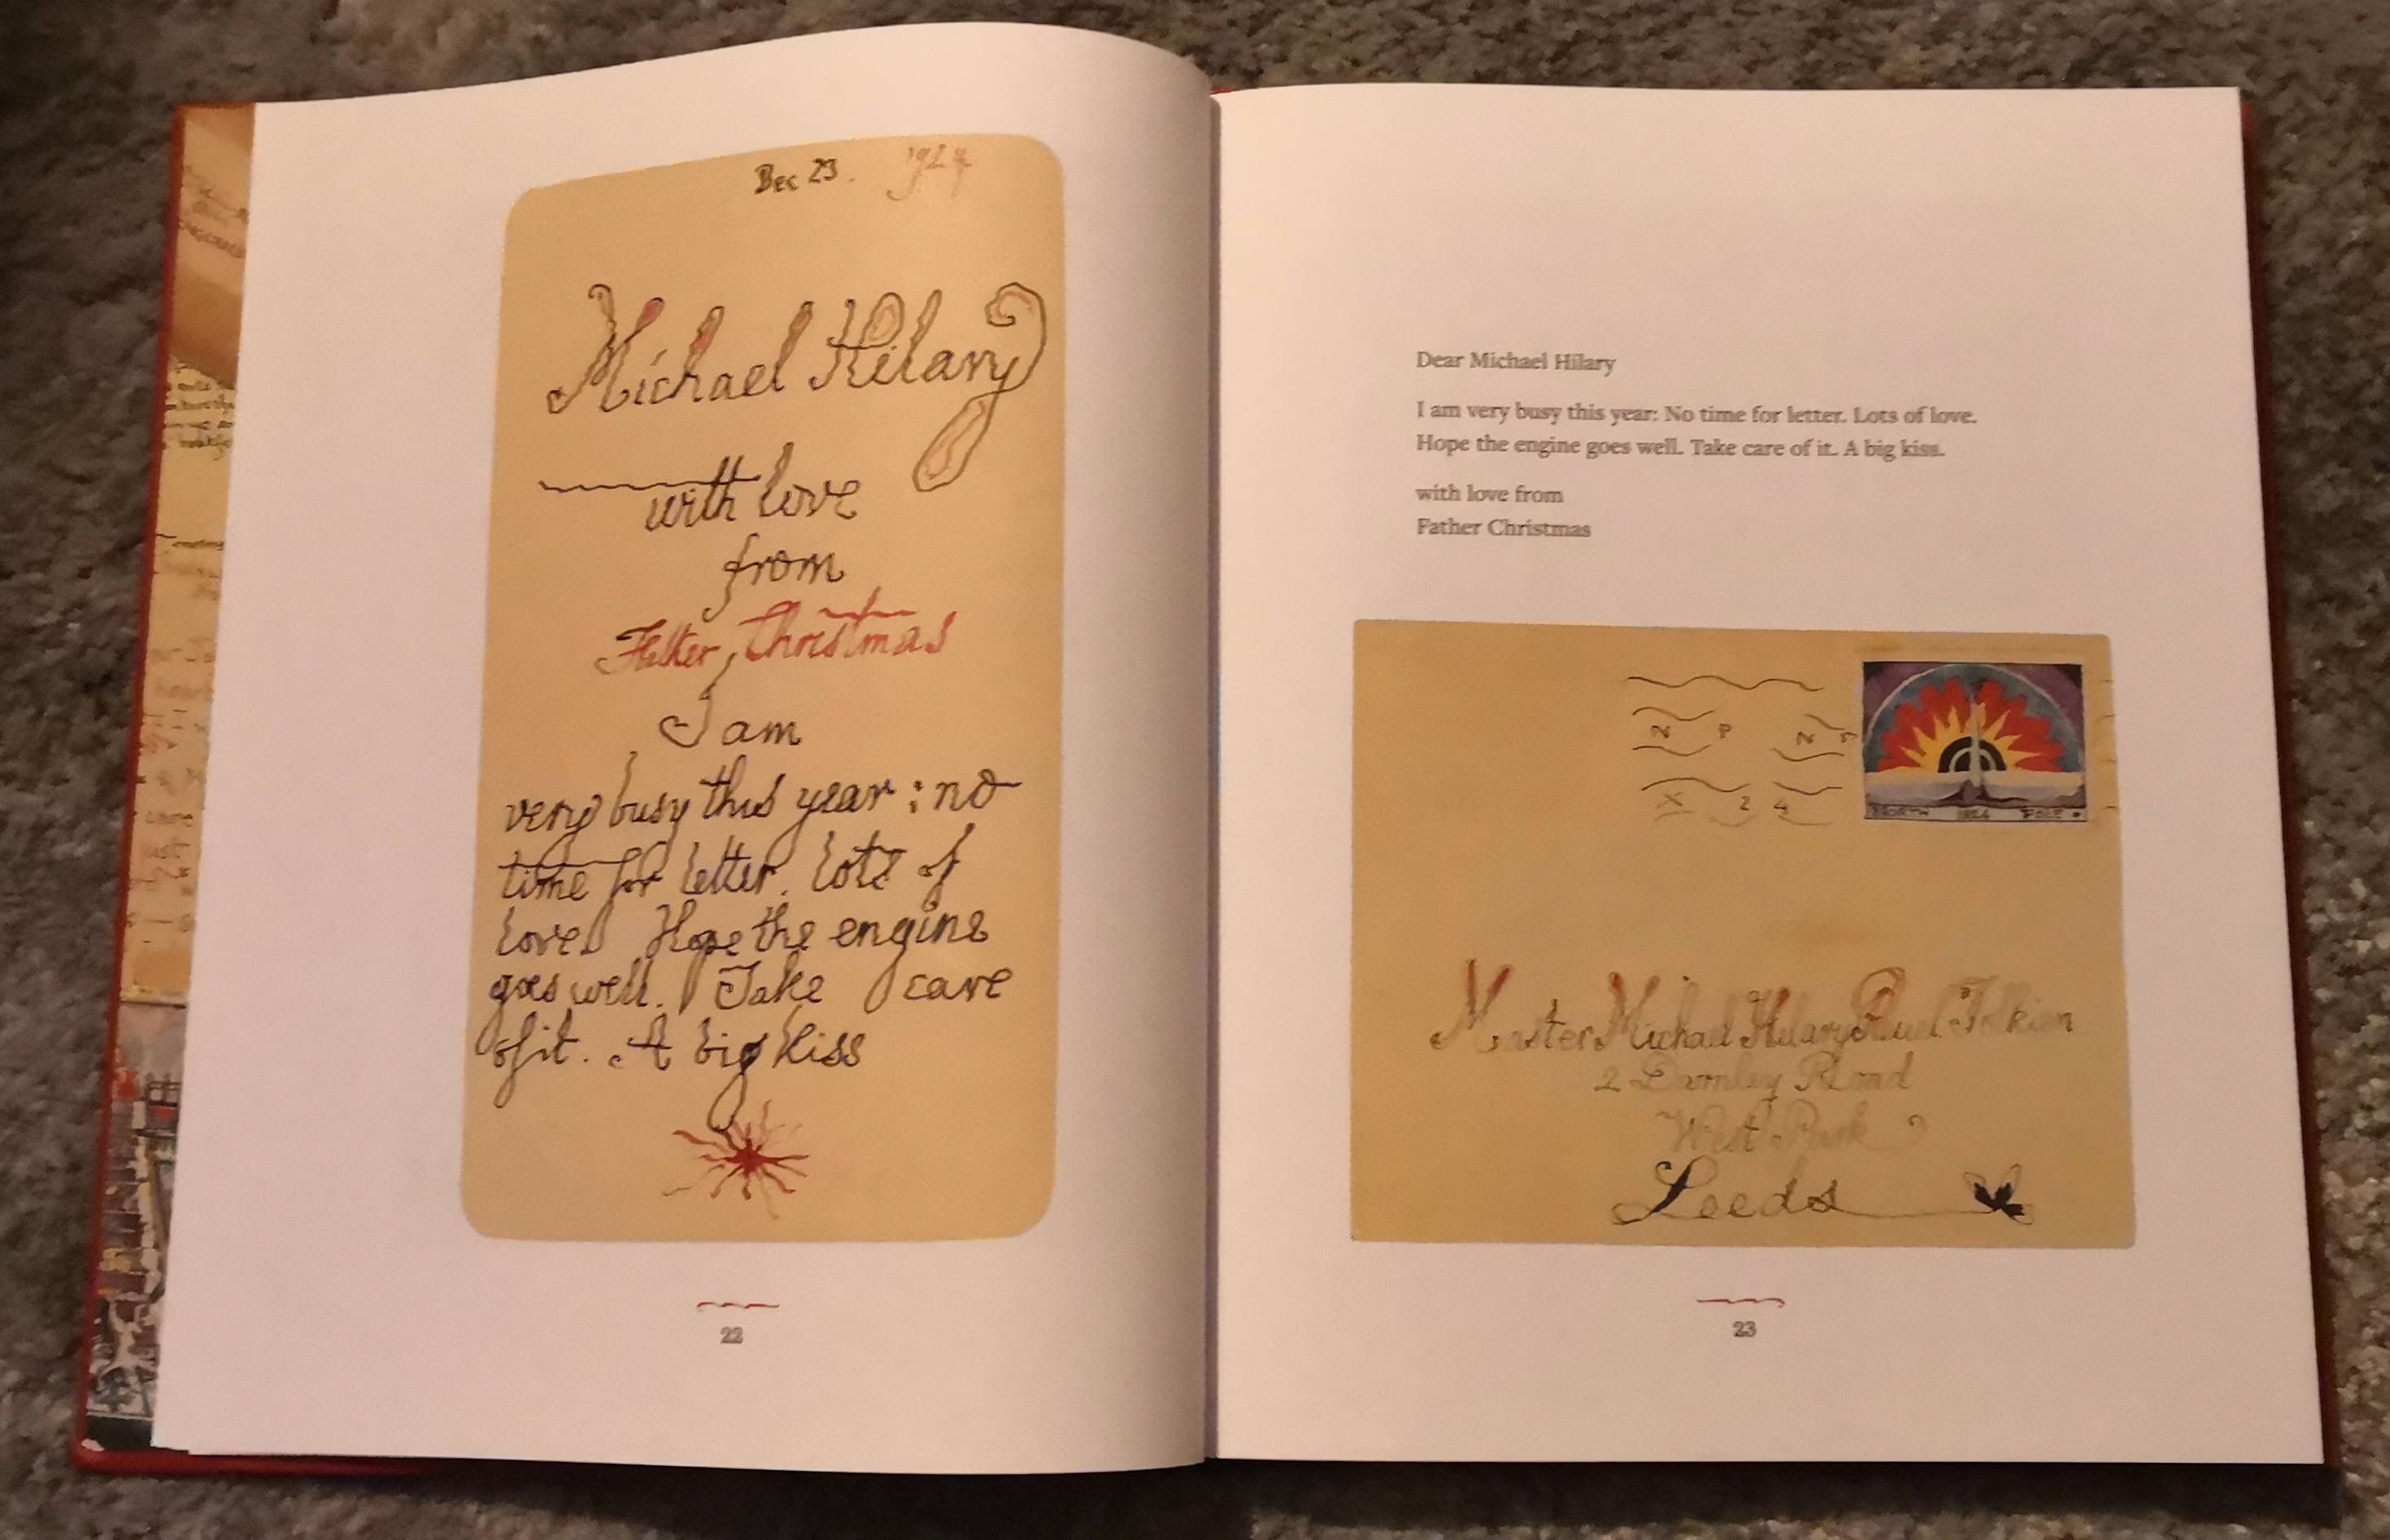 Dec 23. 1924
Michael Hilary
with love
from
Father Christmas
I am
very busy this year : no
time for letter. lots of
love. Hope the engine
goes well. Take care
of it. A big kiss
22
Dear Michael Hilary
I am very busy this year: No time for letter. Lots of love.
Hope the engine goes well. Take care of it. A big kiss.
with love from
Father Christmas
N P N P
X 2 4
NORTH 1924 POLE
Master Michael Hilary Reuel Tolkien
2 Darnley Road
West Park
Leeds
23